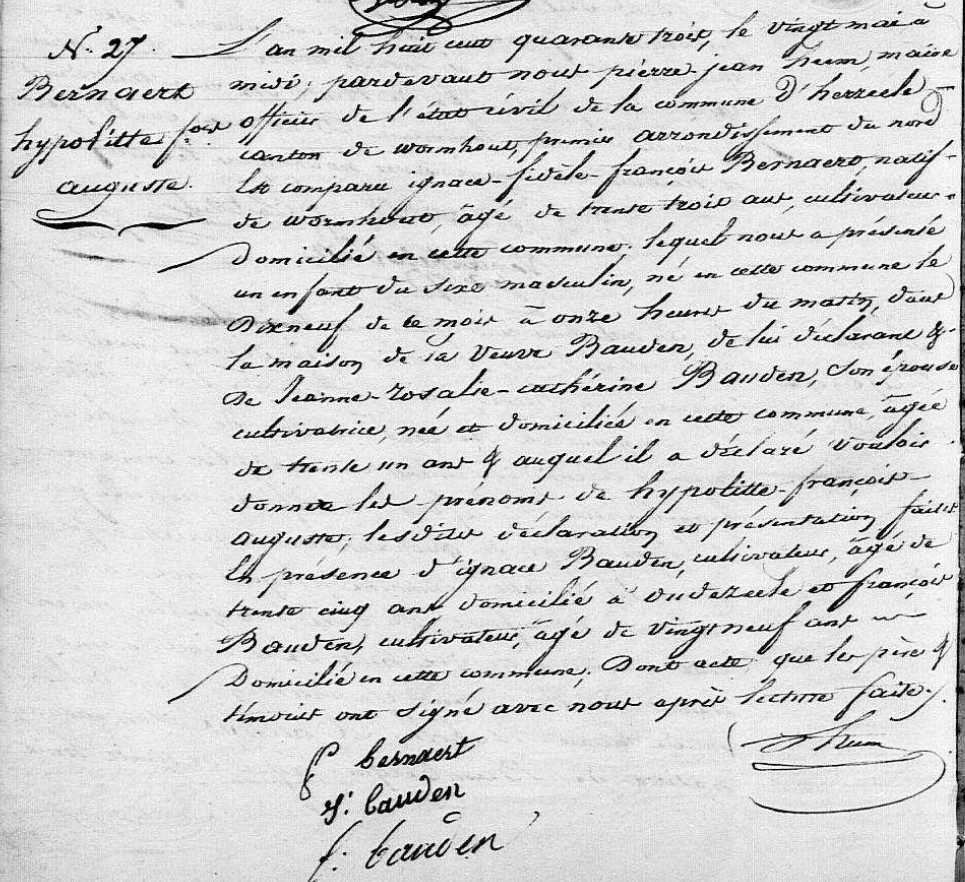 N. 27.
Bernaert
hypolitte f.ois
auguste.
L'an mil huit cent quarante trois, le vingt mai à
midi, pardevant nous pierre-jean heem, maire
officier de l'état civil de la commune d'herzeele
canton de wormhout, premier arrondissement du nord
Est comparu ignace-fidèle-françois Bernaert, natif
de wormhout, âgé de trente trois ans, cultivateur
domicilié en cette commune, lequel nous a présenté
un enfant du sexe masculin, né en cette commune le
dixneuf de ce mois à onze heures du matin, dans
la maison de la veuve Bauden, de lui déclarant &
de Jeanne-rosalie-cathérine Bauden, son épouse
cultivatrice, née et domiciliée en cette commune, âgée
de trente un ans & auquel il a déclaré vouloir
donner les prénoms de hypolitte-françois-
auguste, lesdites déclaration et présentation faites
En présence d'ignace Bauden, cultivateur, âgé de
trente cinq ans domicilié à oudezeele et françois
Bauden, cultivateur, âgé de vingt neuf ans
domicilié en cette commune. Dont acte que les père &
témoins ont signé avec nous après lecture faite.
bernaert
bauden
f. bauden
heem